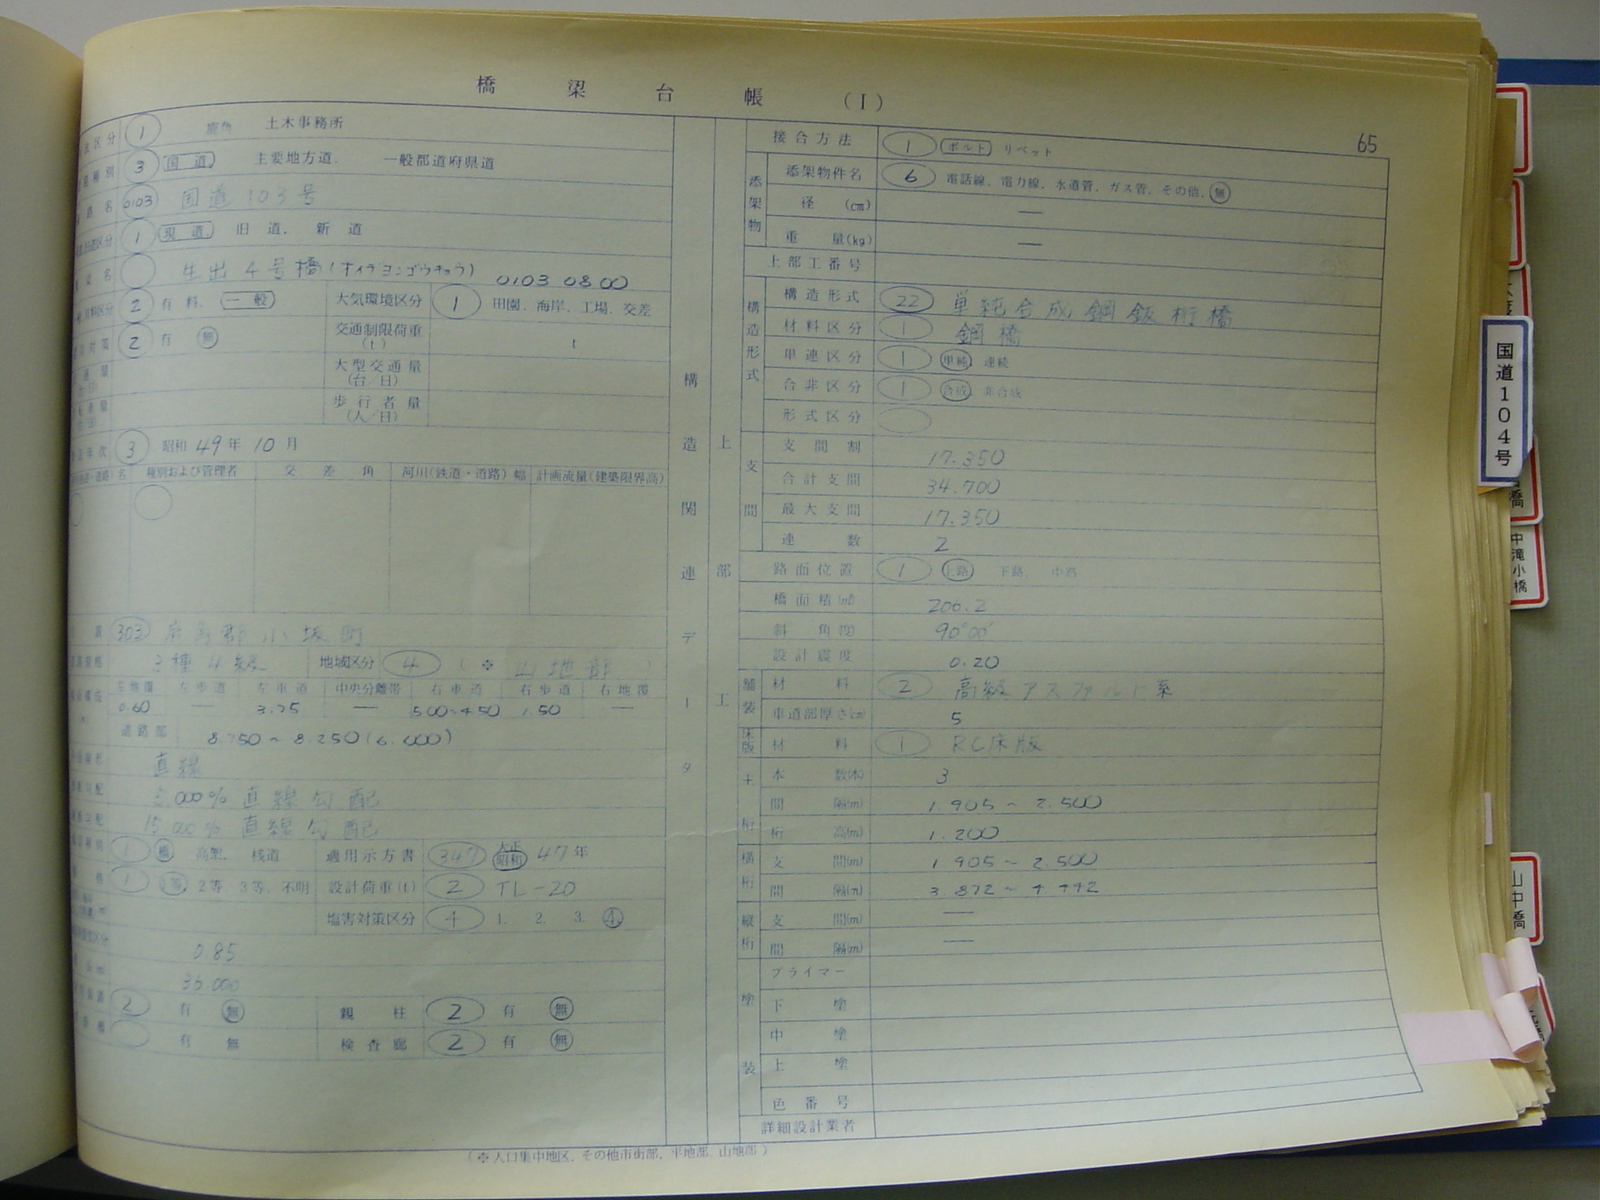 橋梁台帳(I)
65
区分 1 鹿角 土木事務所
種別 3 国道. 主要地方道. 一般都道府県道
路名 0103 国道103号
区分 1 現道. 旧道. 新道
名 生出4号橋(オイデヨンゴウキョウ) 0103 0800
区分 2 有料. 一般 大気環境区分 1 田園. 海岸. 工場. 交差
対策 2 有 無 交通制限荷重(t) t
大型交通量(台/日)
歩行者量(人/日)
年次 3 昭和49年10月
名 種別および管理者 交差角 河川(鉄道・道路)幅 計画流量(建築限界高)
303 鹿角郡小坂町
3種4級 地域区分 4 (※ 山地部)
左地覆 左歩道 左車道 中央分離帯 右車道 右歩道 右地覆
0.60 — 3.25 — 5.00~4.50 1.50 —
道路部 8.750~8.250(6.000)
直線
直線勾配
直線勾配
1 橋 高架. 桟道 適用示方書 347 大正 昭和 47年
1 1等. 2等. 3等. 不明 設計荷重(t) 2 TL-20
塩害対策区分 4 1. 2. 3. 4.
0.85
35.000
2 有 無 親柱 2 有 無
有 無 検査廊 2 有 無
構造関連データ
上部工
接合方法 1 ボルト リベット
添架物 添架物件名 6 電話線. 電力線. 水道管. ガス管. その他. 無
径(cm) —
重量(kg) —
上部工番号
構造形式 構造形式 22 単純合成鋼鈑桁橋
材料区分 1 鋼橋
単連区分 1 単純 連続
合非区分 1 合成 非合成
形式区分
支間 支間割 17.350
合計支間 34.700
最大支間 17.350
連数 2
路面位置 1 上路 下路. 中路
橋面積(㎡) 206.2
斜角(度) 90°00'
設計震度 0.20
舗装 材料 2 高級アスファルト系
車道部厚さ(cm) 5
床版 材料 1 RC床版
主桁 本数(本) 3
間隔(m) 1.905~2.500
桁高(m) 1.200
横桁 支間(m) 1.905~2.500
間隔(m) 3.872~4.442
縦桁 支間(m) —
間隔(m) —
塗装 プライマー
下塗
中塗
上塗
色番号
詳細設計業者
(※人口集中地区. その他市街部. 平地部. 山地部)
国道104号
中滝小橋
山中橋